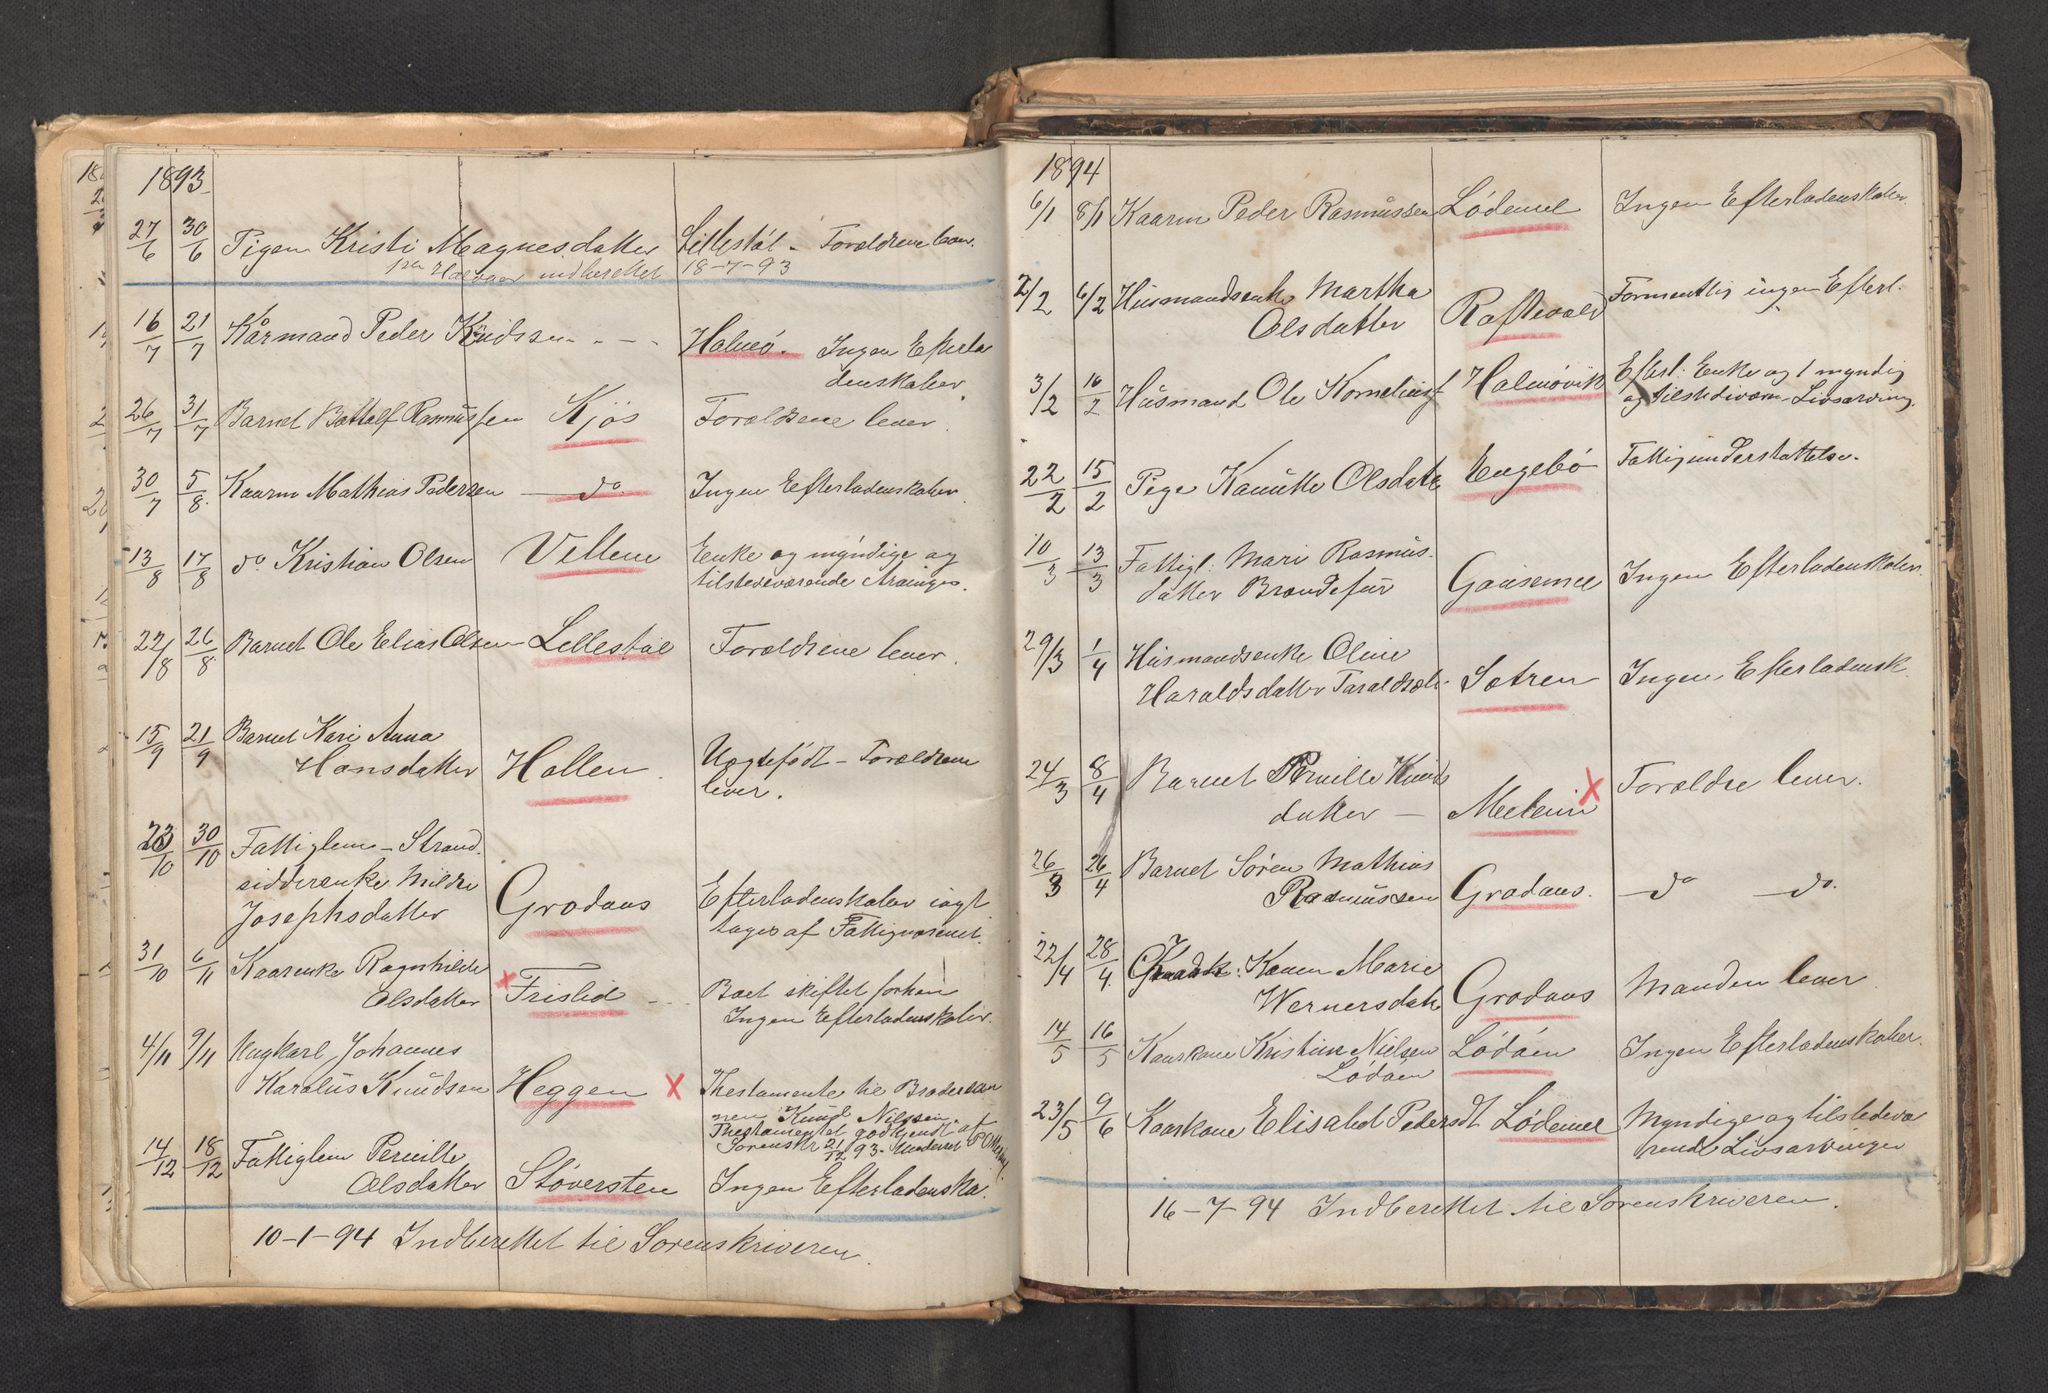 1893
27/6 30/6 Pigen Kristi Magnesdatter Lillestøl - Forældrene lever.
indberettet 18-7-93
16/7 21/7 Kårmand Peder Knudsen - - - Halnø. Ingen Efterla
denskaber.
26/7 31/7 Barnet Bottolf Rasmussen Kjøs Forældrene lever.
30/7 5/8 Kaarm Mathias Pedersen do Ingen Efterladenskaber.
13/8 17/8 do Kristian Olsen Vellene Enke og myndige og
tilstedeværende Arvinger.
22/8 26/8 Barnet Ole Elias Olsen Lillestøl Forældrene lever.
15/9 21/9 Barnet Kari Anna
Hansdatter Hallen. Uægtefødt - Forældrene
lever.
23/10 30/10 Fattiglem - Strand-
sidderenke Mildri
Josephsdatter Grodaas Efterladenskaber iagt
tages af Fattigvæsenet.
31/10 6/11 Kaarenke Ragnhilde
Olsdatter x Frislid - - Boet skiftet forhen
Ingen Efterladenskaber.
4/11 9/11 Ungkarl Johannes
Karolus Knudsen Heggen x Thestamente til Brodersøn
nen Knud Nilsen.
Thestamentet godkjendt af
Sorenskr 21/12 93.
14/12 18/12 Fattiglem Pernille
Olsdatter Støversten Ingen Efterladenska.
10-1-94 Indberettet til Sorenskriveren.
1894
6/1 8/1 Kaarm Peder Rasmussen Lødemel Ingen Efterladenskaber.
2/2 6/2 Husmandsenke Martha
Olsdatter Raftevold Formentlig ingen Efterl.
3/2 10/2 Husmand Ole Kornelius Halnøvik Efterl: Enke og 1 myndig
og tilstedeværn Livsarving.
22/2 15/2 Pige Kanutte Olsdatr Engebø Fattigunderstøttelse.
10/3 13/3 Fattigl: Mari Rasmus-
datter Brandefur Gausemel Ingen Efterladenskaber.
29/3 1/4 Husmandsenke Oline
Haraldsdatter Taraldsæt- Sætren Ingen Efterladensk
24/3 8/4 Barnet Pernille Knuds
datter - Meelem x Forældre lever.
26/3 26/4 Barnet Søren Mathias
Rasmussen Grodaas. do do.
22/4 28/4 Karen Marie
Wernersdatr Grodaas Manden lever
14/5 16/5 Kaarkone Kristine Nielsen
Lødøen Lødøen Ingen Efterladenskaber.
23/5 9/6 Kaarkone Elisabet Pedersdt Lødemel Myndige og tilstedevæ
rende Livsarvinger
16-7-94 Indberettet til Sorenskriveren.